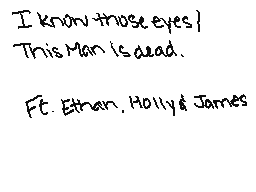 I know those eyes/
This Man is dead.
Ft. Ethan, Holly & James